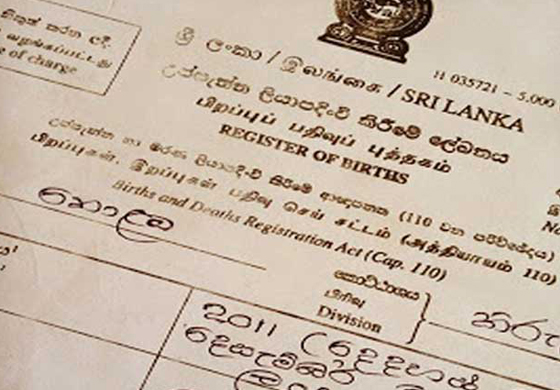 නිකුත් කරන ලදී.
வழங்கப்பட்டது
e of charge
H 035721 – 5,000
ශ්‍රී ලංකා / இலங்கை / SRI LANKA
උප්පැන්න ලියාපදිංචි කිරීමේ ලේඛනය
பிறப்புப் பதிவுப் புத்தகம்
REGISTER OF BIRTHS
උප්පැන්න හා මරණ ලියාපදිංචි කිරීමේ ආඥාපනත (110 වන පරිච්ඡේදය)
பிறப்புகள், இறப்புகள் பதிவு செய் சட்டம் (அத்தியாயம் 110)
Births and Deaths Registration Act (Cap. 110)
No
කොට්ඨාශය
பிரிவு
Division
2011 දෙදහස්
දෙසැම්බර්